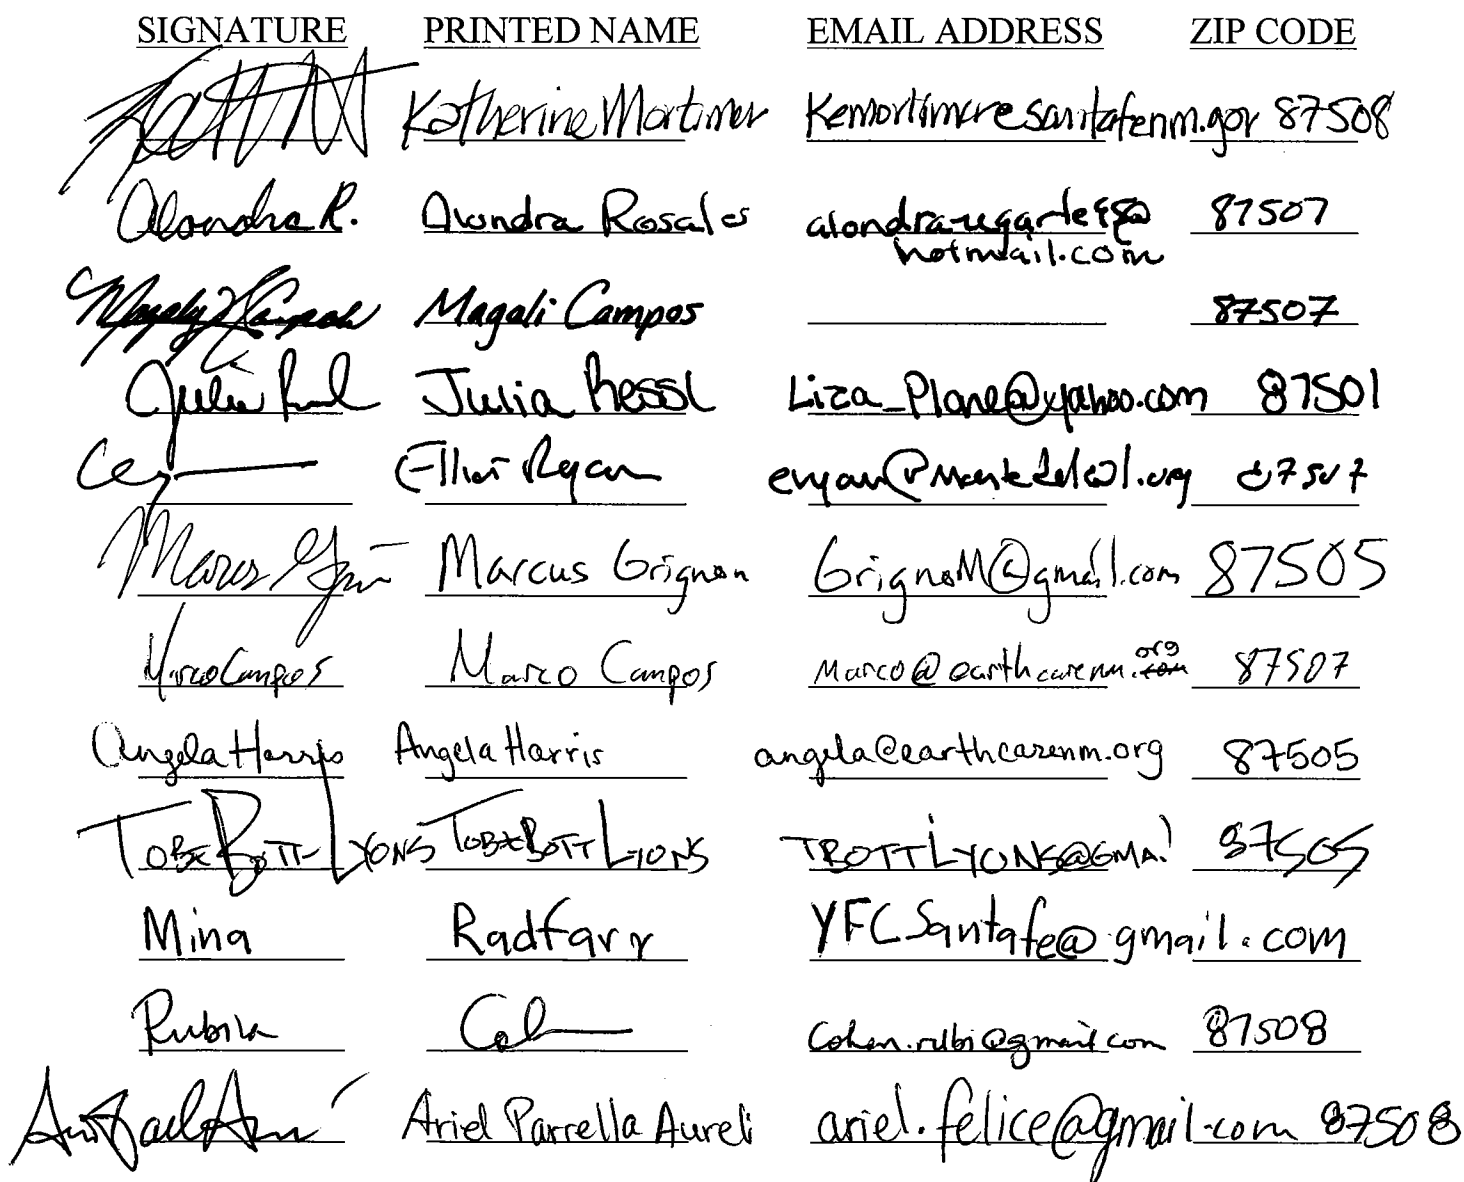 SIGNATURE PRINTED NAME EMAIL ADDRESS ZIP CODE
Katherine Mortimer Kemortimer@santafenm.gov 87508
Alondra R. Alondra Rosales 87507
hotmail.com
Magali Campos 87507
Julia Julia Ressl Liza_Plane@yahoo.com 87501
Elliot Ryan 87507
Marcus Marcus Grignon GrignoM@gmail.com 87505
Marco Campos Marco Campos Marco@earthcarenm.org 87507
Angela Harris Angela Harris angela@earthcarenm.org 87505
TOBE BOTT LYONS TOBE BOTT LYONS TBOTTLYONS@GMAil 87505
Mina Radfarr YFCSantafe@gmail.com
Cohen.rubi@gmail.com 87508
Ariel Parrella Aureli ariel.felice@gmail.com 87508